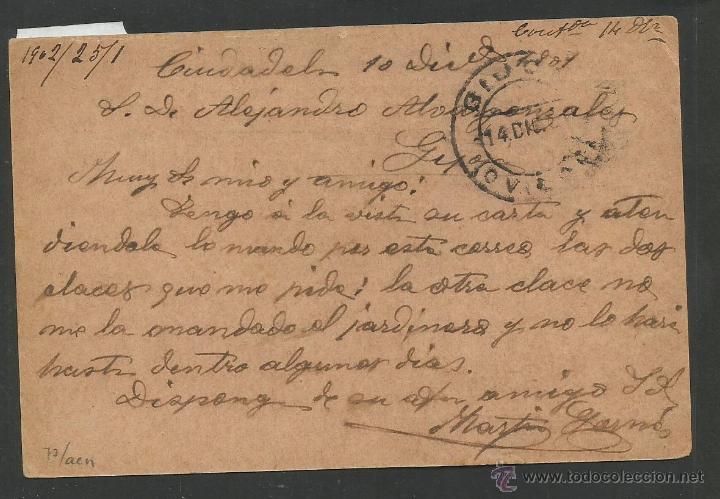 1902/25/1
Contda 14 Dbre
Ciudadela 10 Dic
S. Dn Alejandro
GIJON
14.DIC.
(OVIEDO)
Muy Sr mio y amigo:
Tengo á la vista su carta y aten
diendole lo mando por este correo las dos
claces que me pide; la otra clace no
me la mandado el jardinero y no lo hará
hasta dentro algunos dias.
Dispong de su afm amigo
73/aen
todocoleccion.net